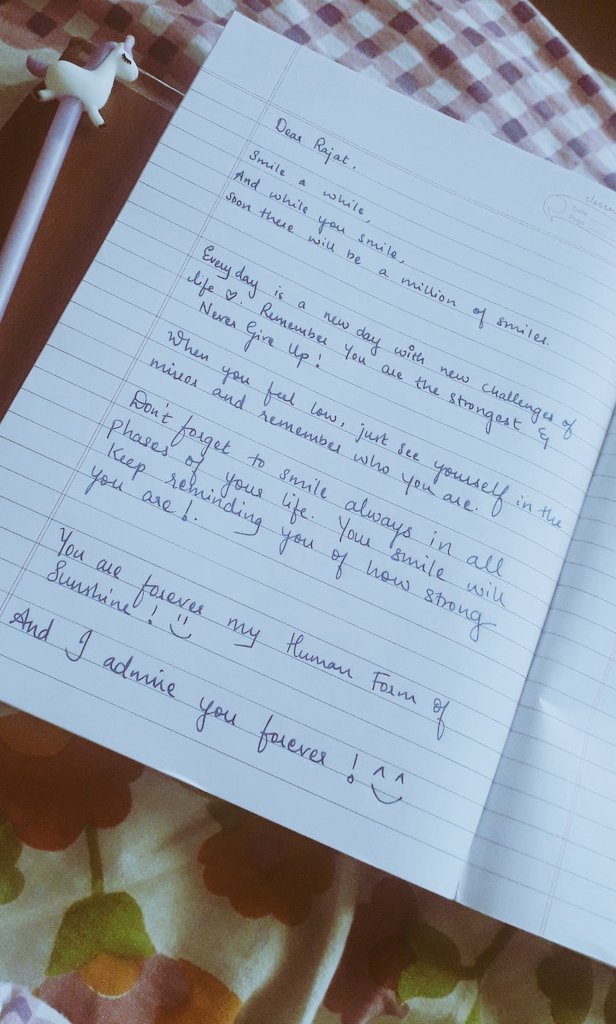 Dear Rajat,
Smile a while,
And while you smile,
Soon there will be a million of smiles.
Every day is a new day with new challenges of
life ♡. Remember You are the strongest &
Never Give Up!
When you feel low, just see yourself in the
mirror and remember who you are.
Don't forget to smile always in all
phases of your life. Your smile will
keep reminding you of how strong
you are!
You are forever my Human Form of
Sunshine! :)
And I admire you forever! ^‿^
Date
Page